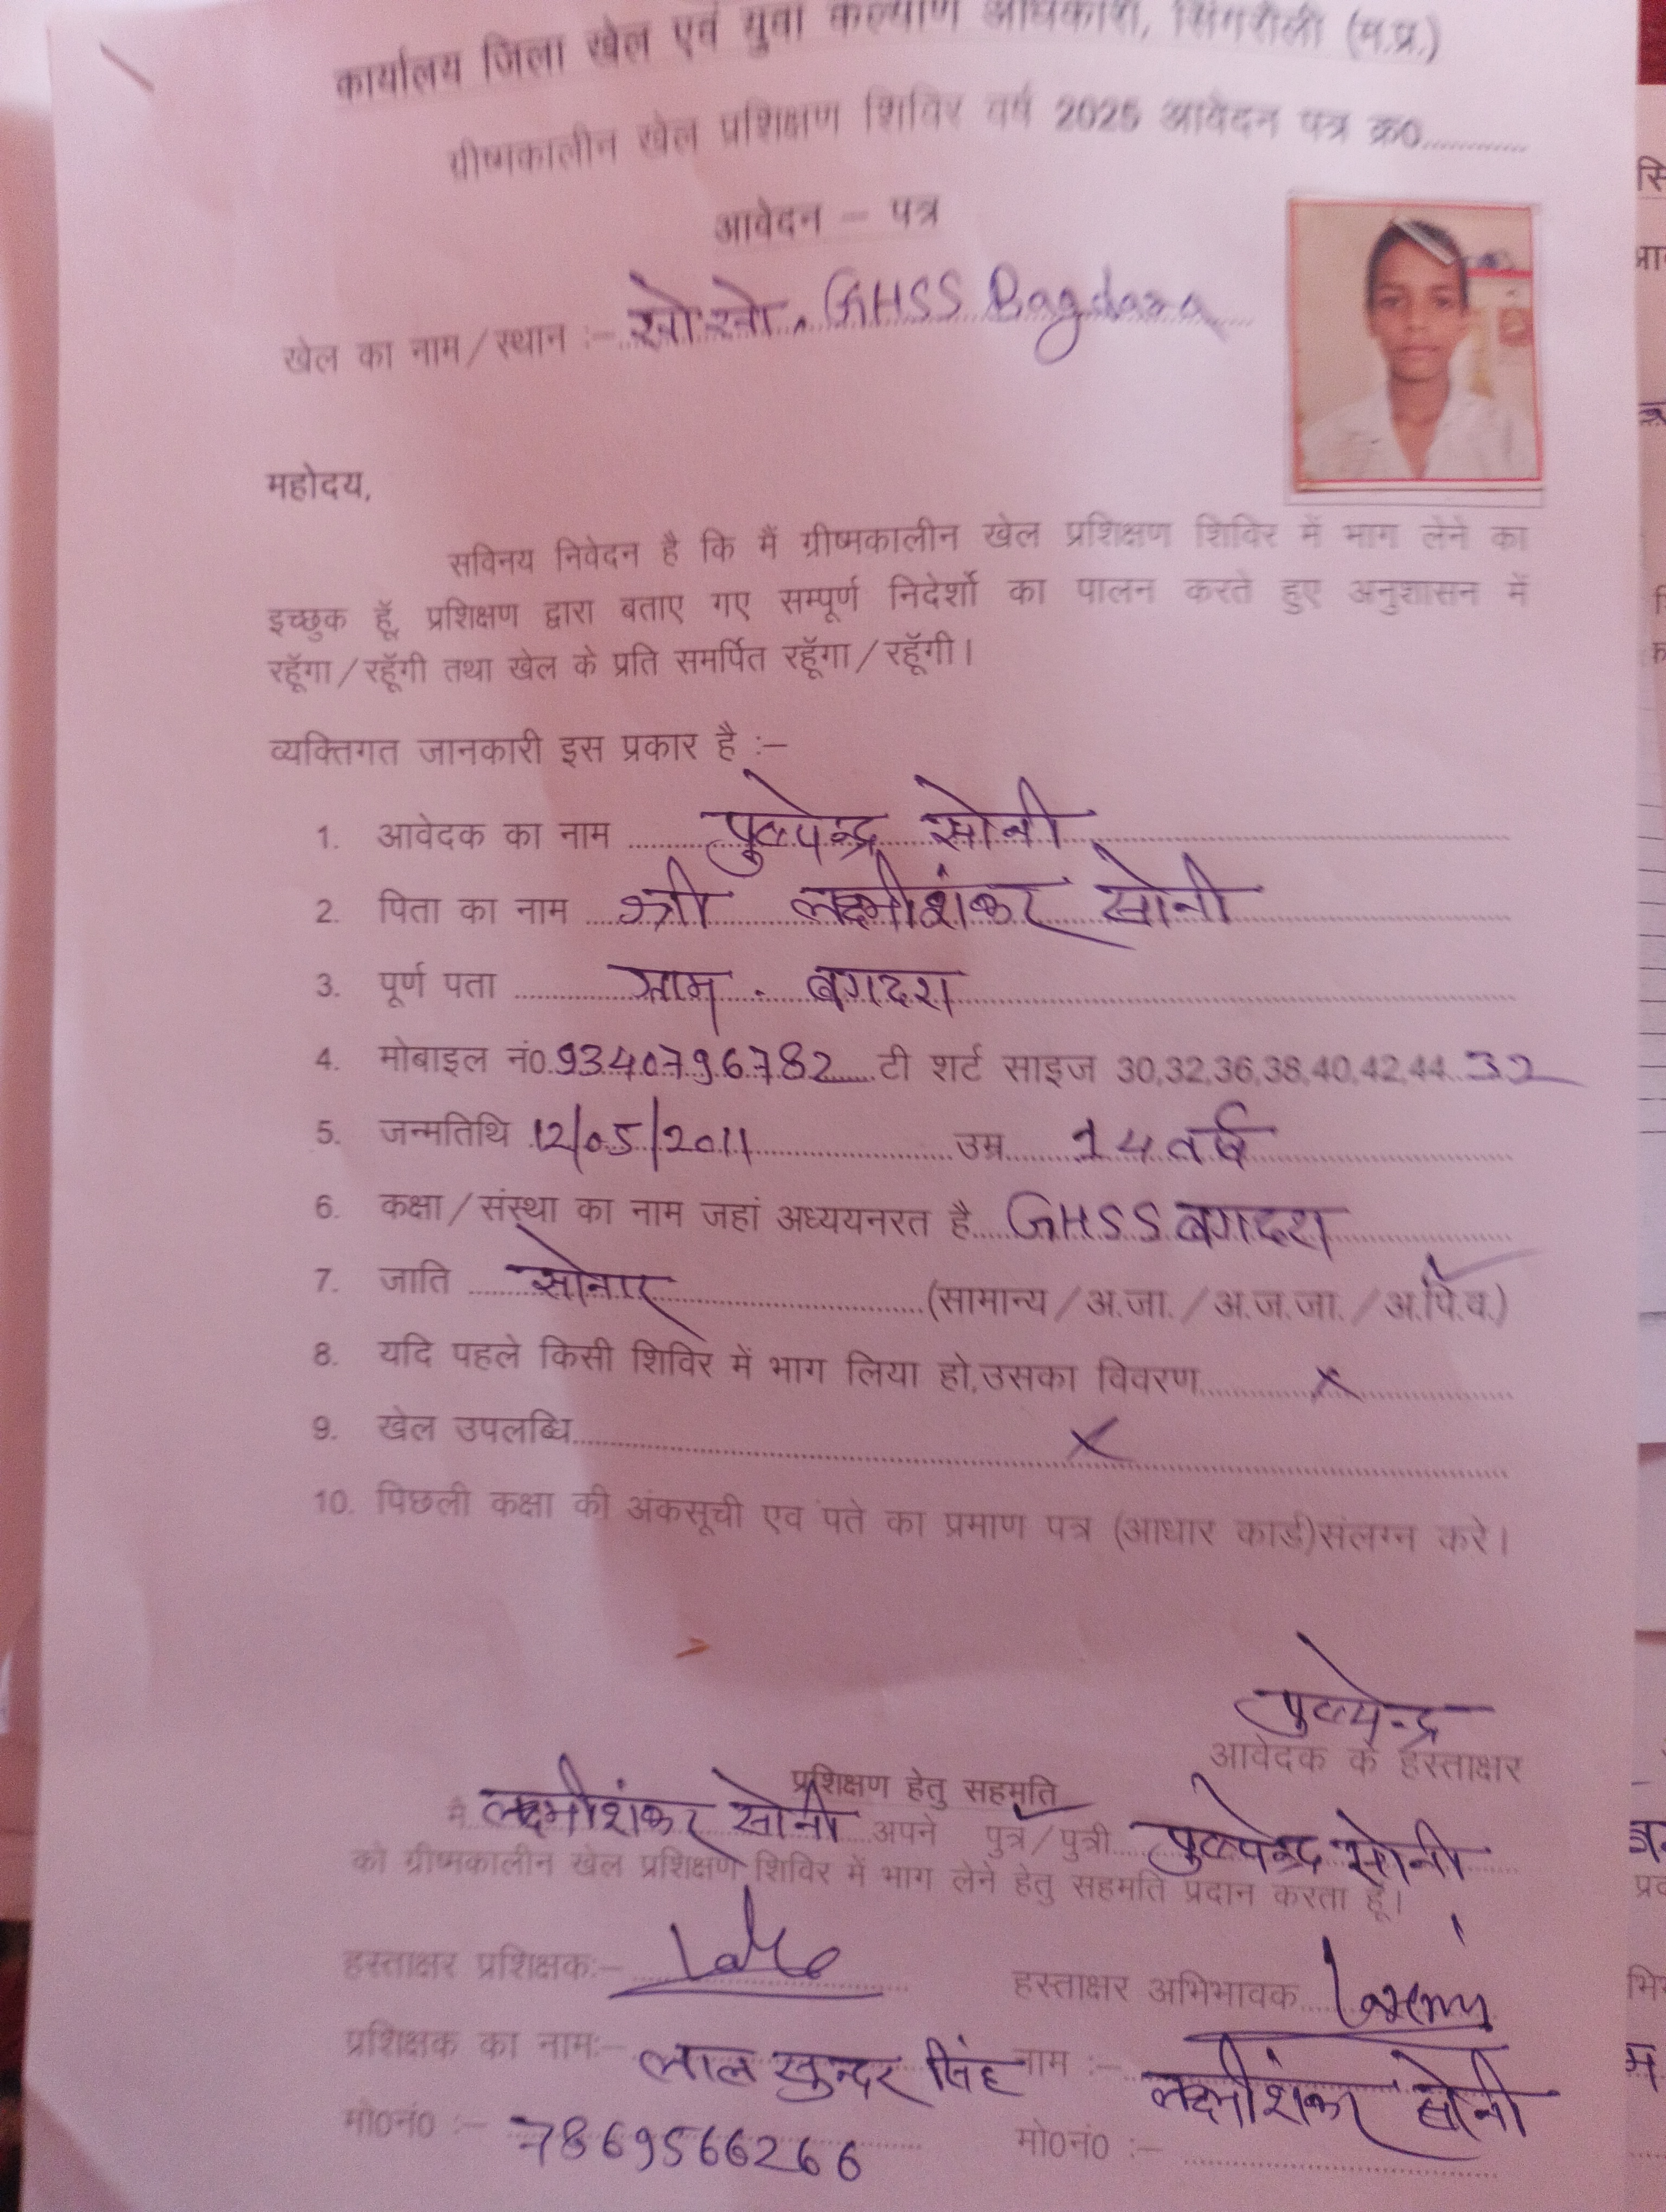 कार्यालय जिला खेल एवं युवा कल्याण अधिकारी, सिंगरौली (म.प्र.)
ग्रीष्मकालीन खेल प्रशिक्षण शिविर वर्ष 2025 आवेदन पत्र क्र0.............
आवेदन – पत्र
खेल का नाम/स्थान :– खो खो, GHSS Bagdara
महोदय,
सविनय निवेदन है कि मैं ग्रीष्मकालीन खेल प्रशिक्षण शिविर में भाग लेने का
इच्छुक हूॅ, प्रशिक्षण द्वारा बताए गए सम्पूर्ण निदेर्शो का पालन करते हुए अनुशासन में
रहूॅगा/रहूॅगी तथा खेल के प्रति समर्पित रहूॅगा/रहूॅगी।
व्यक्तिगत जानकारी इस प्रकार है :–
1. आवेदक का नाम पुष्पेन्द्र सोनी
2. पिता का नाम श्री लक्ष्मीशंकर सोनी
3. पूर्ण पता ग्राम - बगदरा
4. मोबाइल नं0. 9340796782 टी शर्ट साइज 30,32,36,38,40,42,44 32
5. जन्मतिथि 12/05/2011 उम्र 14 वर्ष
6. कक्षा/संस्था का नाम जहां अध्ययनरत है GHSS बगदरा
7. जाति सोनार (सामान्य/अ.जा./अ.ज.जा./अ.पि.व.)
8. यदि पहले किसी शिविर में भाग लिया हो,उसका विवरण x
9. खेल उपलब्धि x
10. पिछली कक्षा की अंकसूची एव पते का प्रमाण पत्र (आधार कार्ड)संलग्न करे।
पुष्पेन्द्र
आवेदक के हस्ताक्षर
प्रशिक्षण हेतु सहमति
मै लक्ष्मीशंकर सोनी अपने पुत्र/पुत्री पुष्पेन्द्र सोनी
को ग्रीष्मकालीन खेल प्रशिक्षण शिविर में भाग लेने हेतु सहमति प्रदान करता हूं।
हस्ताक्षर प्रशिक्षक:– हस्ताक्षर अभिभावक
प्रशिक्षक का नाम:– लाल सुन्दर सिंह नाम :– लक्ष्मीशंकर सोनी
मो0नं0 :– 7869566266 मो0नं0 :–